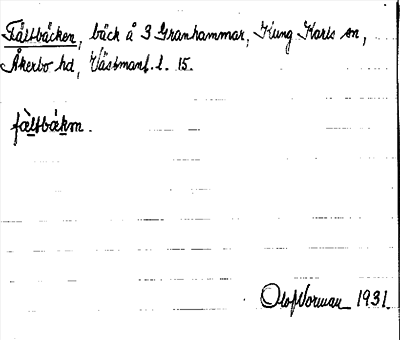 Fältbäcken, bäck å 3 Granhammar, Kung Karls sn,
Åkerbo hd, Västmanl. l. 15.
fàltbákm.
Olof Norman 1931.